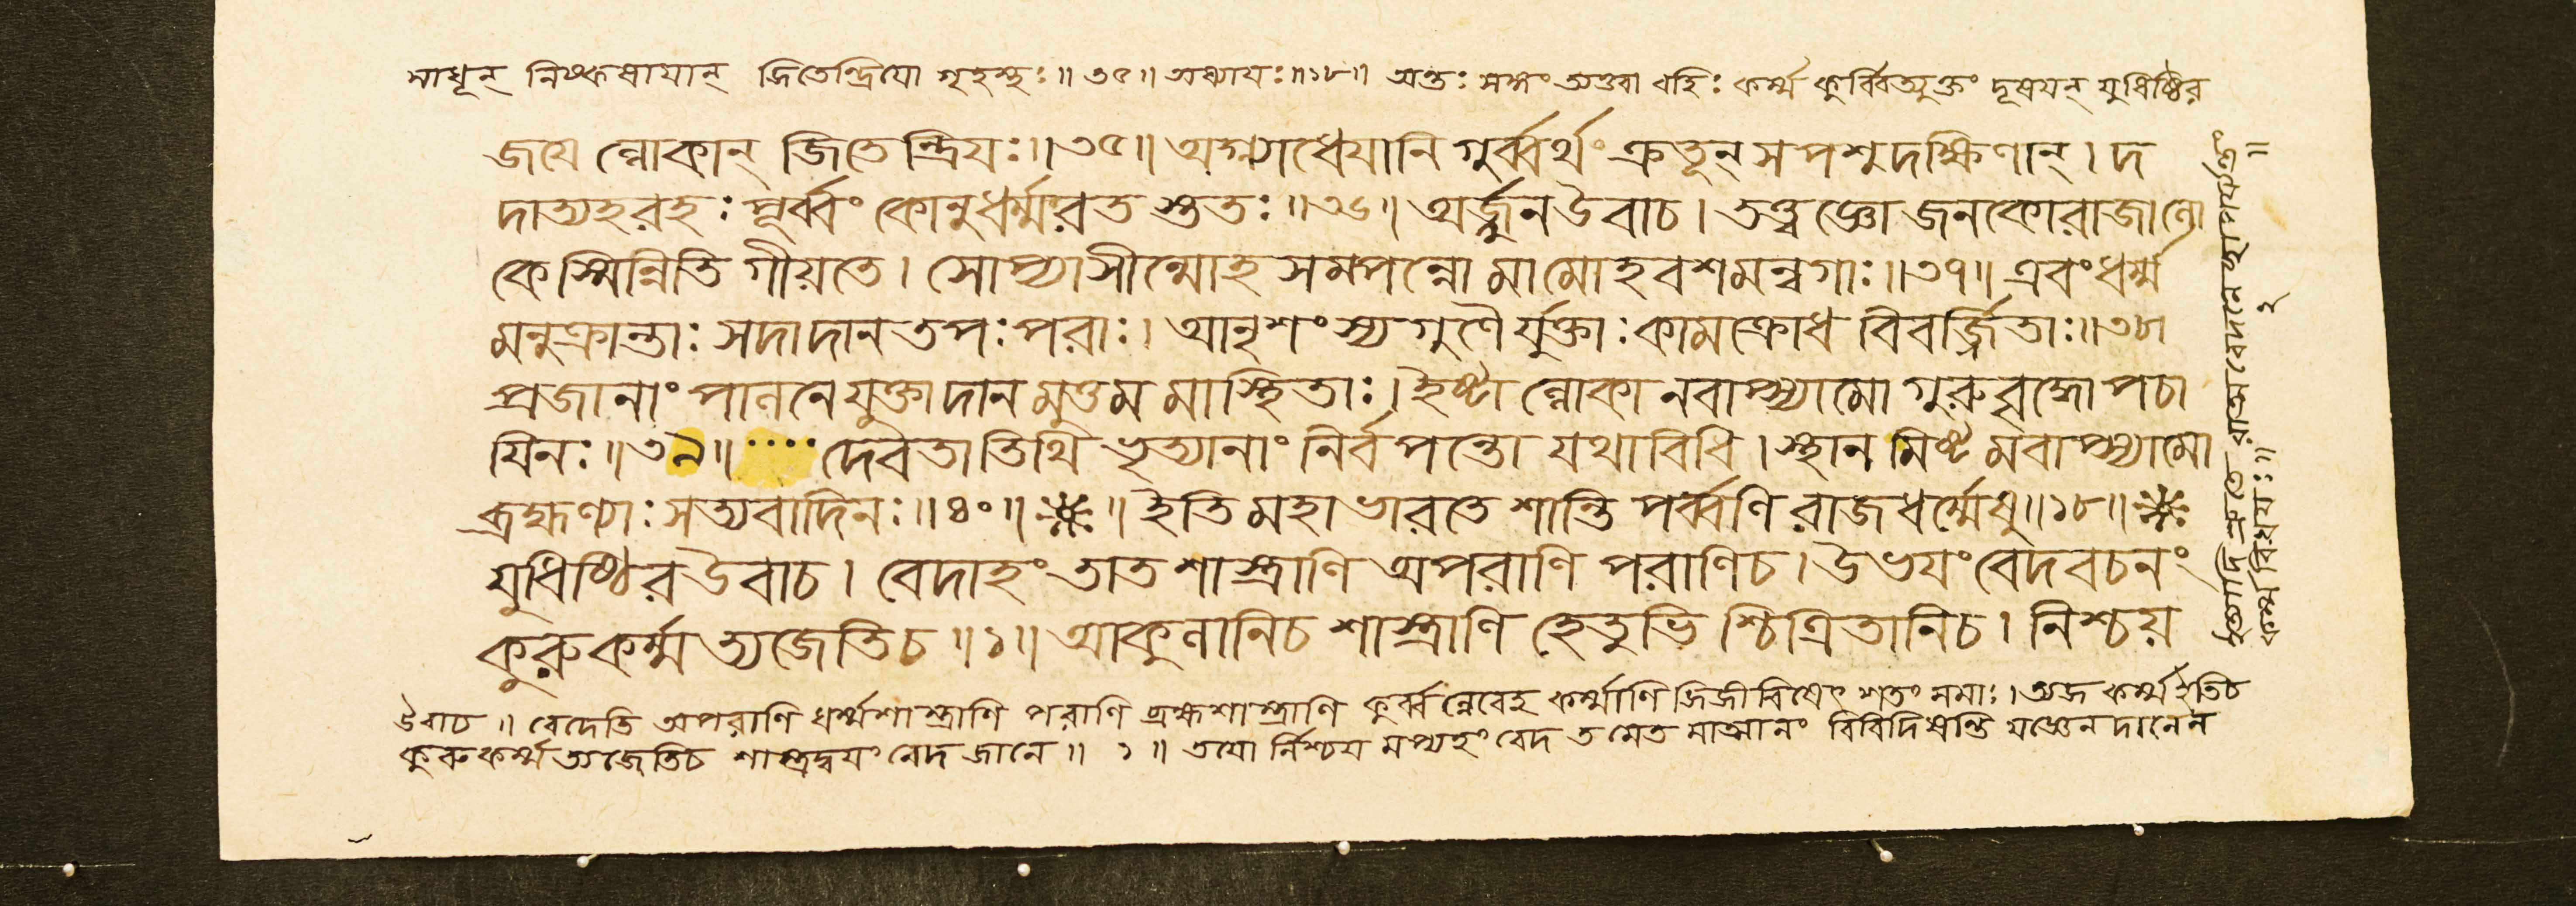 সাধূন্ নিষ্কষায়ান্ জিতেন্দ্রিয়ো গৃহস্থঃ॥ ৩৫॥ অধ্যায়ঃ॥১৮॥ অন্তঃ সঙ্গং ত্যক্ত্বা বহিঃ কর্ম্ম কুর্ব্বিত্যুক্তং দূষয়ন্ যুধিষ্ঠির
জযে ল্লোকান্ জিতেন্দ্রিযঃ॥৩৫॥ অগ্ন্যাধেযানি গুর্ব্বর্থং ক্রতূন্ সপশুদক্ষিণান্। দ
দাত্যহরহঃ পূর্ব্বং কোনুধর্ম্মরত স্ততঃ॥৩৬॥ অর্জ্জুনউবাচ। তত্ত্বজ্ঞো জনকোরাজালো
কেস্মিন্নিতি গীয়তে। সোপ্যাসীন্মোহ সমপন্নো মামোহবশমন্বগাঃ॥৩৭॥ এবংধর্ম্ম
মনুক্রান্তাঃ সদাদানতপঃপরাঃ। আনৃশংস্য গুণৈ র্যুক্তাঃকামক্রোধ বিবর্জ্জিতাঃ॥৩৮॥
প্রজানাং পালনেযুক্তাদান মুত্তম মাস্থিতাঃ। ইষ্টা ল্লোকা নবাপ্স্যামো গুরুবৃদ্ধোপচা
যিনঃ॥৩৯॥ দেবতাতিথি ভৃত্যানাং নির্বপন্তো যথাবিধি। স্থান মিষ্ট মবাপ্স্যামো
ব্রহ্মণ্যাঃ সত্যবাদিনঃ॥৪০॥ ॥ ইতি মহাভারতে শান্তি পর্ব্বণি রাজধর্ম্মেষু॥১৮॥
যুধিষ্ঠিরউবাচ। বেদাহং তাত শাস্ত্রাণি অপরাণি পরাণিচ। উভযংবেদবচনং
কুরুকর্ম্ম ত্যজেতিচ॥১॥ আকুলানিচ শাস্ত্রাণি হেতুভি শ্চিত্রিতানিচ। নিশ্চয়
উবাচ॥ বেদেতি অপরাণি ধর্ম্মশাস্ত্রাণি পরাণি ব্রহ্মশাস্ত্রাণি কুর্ব্বন্নেবেহ কর্ম্মাণি জিজীবিষেৎ শতং সমাঃ। ত্যজ কর্ম্মইতিচ
কুরু কর্ম্ম ত্যজেতিচ শাস্ত্রদ্বয়ং বেদ জানে॥ ১॥ তয়ো র্নিশ্চয় মপ্যহং বেদ ত মেত মাত্মানং বিবিদিষন্তি যজ্ঞেন দানেন
কর্ম্ম বিষয়ঃ॥